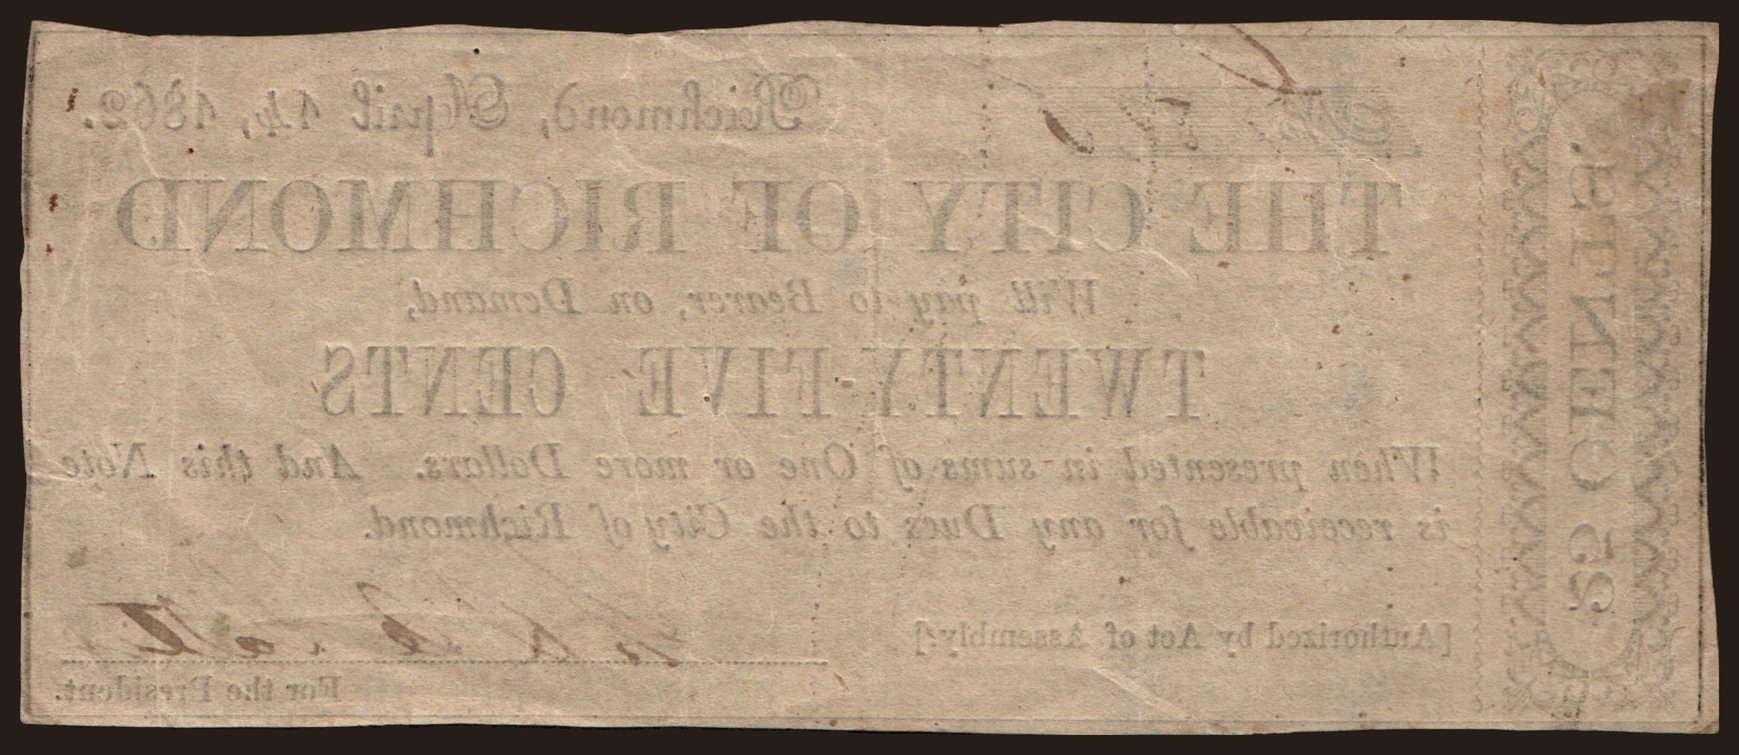 No
Richmond, April 14, 1862.
THE CITY OF RICHMOND
Will pay to Bearer, on Demand,
TWENTY-FIVE CENTS
When presented in sums of One or more Dollars. And this Note
is receivable for any Dues to the City of Richmond.
[Authorized by Act of Assembly.]
For the President.
25 CENTS.